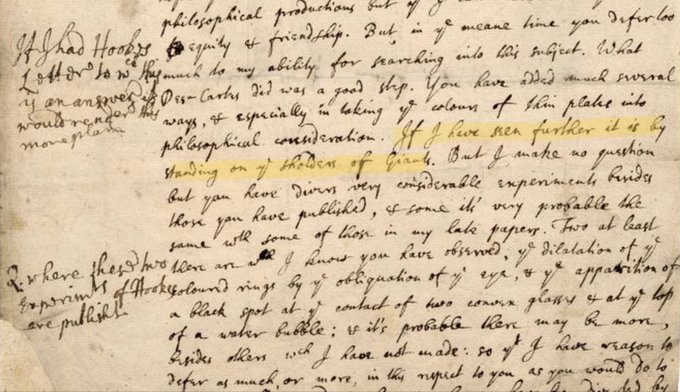 philosophical productions but yᵉ
to equity & friendship. But in yᵉ meane time you defer too
much to my ability for searching into this subject. What
Des-Cartes did was a good step. You have added much several
ways, & especially in taking yᵉ colours of thin plates into
philosophical consideration. If I have seen further it is by
standing on yᵉ sholders of Giants. But I make no question
but you have divers very considerable experiments besides
those you have published, & some it's very probable the
same wth some of those in my late papers. Two at least
there are I know you have observed, yᵉ dilatation of yᵉ
coloured rings by yᵉ obliquation of yᵉ eye, & yᵉ apparition of
a black spot at yᵉ contact of two convex glasses & at yᵉ top
of a water bubble; & it's probable there may be more,
besides others wch I have not made: so yᵗ I have reason to
defer as much, or more, in this respect to you as you would do to
If I had Hookes
Letter to wch this
is an answer it
would render this
more plain
Q. where these two
Experimts of Hookes
are publisht